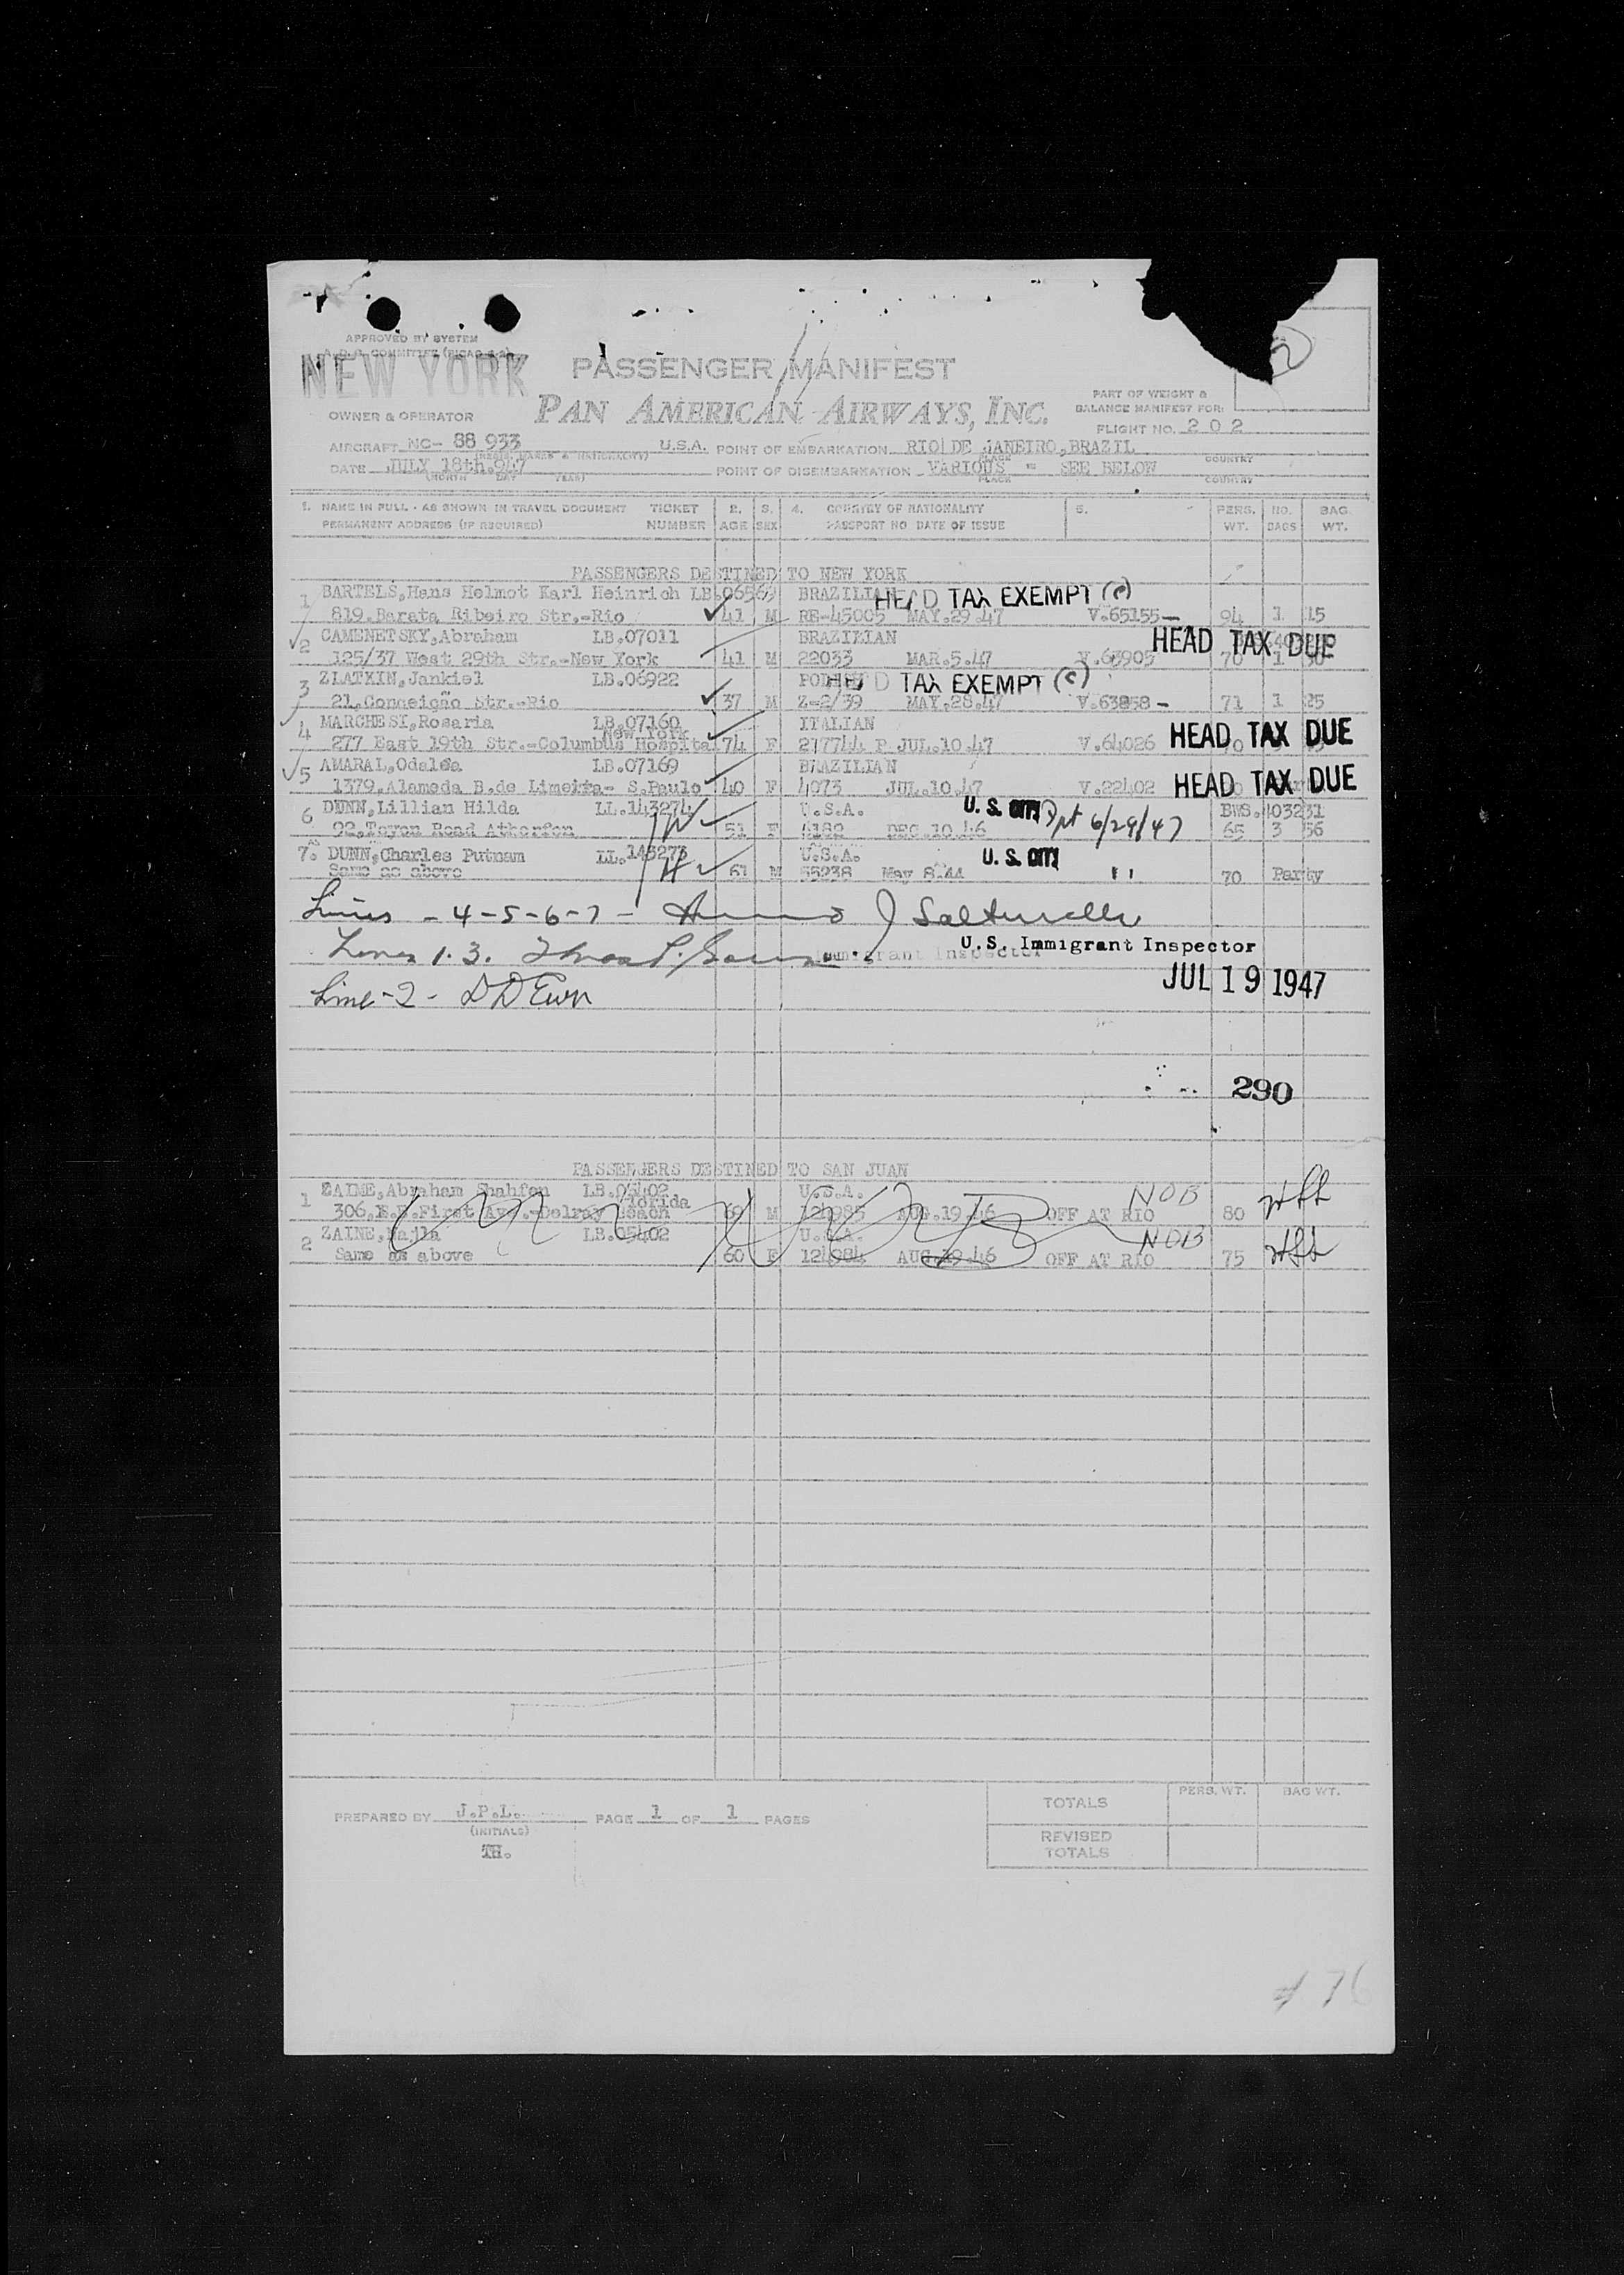 APPROVED BY SYSTEM
NEW YORK
PASSENGER MANIFEST
OWNER & OPERATOR
PAN AMERICAN AIRWAYS, INC.
PART OF WEIGHT &
BALANCE MANIFEST FOR:
FLIGHT NO. 2 0 2
AIRCRAFT NC- 88 933 U.S.A. POINT OF EMBARKATION RIO DE JANEIRO, BRAZIL
PLACE COUNTRY
DATE JULY 18th.947 POINT OF DISEMBARKATION VARIOUS - SEE BELOW
(MONTH DAY YEAR) PLACE COUNTRY
1. NAME IN FULL - AS SHOWN IN TRAVEL DOCUMENT TICKET 2. 3. 4. COUNTRY OF NATIONALITY 5. PERS. NO. BAG.
PERMANENT ADDRESS (IF REQUIRED) NUMBER AGE SEX PASSPORT NO DATE OF ISSUE WT. BAGS WT.
PASSENGERS DESTINED TO NEW YORK
1 BARTELS,Hans Helmot Karl Heinrich LB.0656 BRAZILIAN HEAD TAX EXEMPT (c)
819.Barata Ribeiro Str.-Rio 41 M RE-45005 MAY.29.47 V.65155- 94 1 15
2 CAMENETSKY,Abraham LB.07011 BRAZILIAN HEAD TAX DUE
125/37 West 29th Str.-New York 41 M 22033 MAR.5.47 V.63905 70 1 30
3 ZLATKIN,Jankiel LB.06922 HEAD TAX EXEMPT (c)
21,Conceição Str.-Rio 37 M Z-2/39 MAY.28.47 V.63858- 71 1 25
4 MARCHESI,Rosaria LB.07160 ITALIAN
New York
277 East 19th Str.-Columbus Hospital 74 F 217744 P JUL.10.47 V.64026 HEAD TAX DUE
5 AMARAL,Odalea LB.07169 BRAZILIAN
1379,Alameda B.de Limeira- S.Paulo 40 F 4073 JUL.10.47 V.22402 HEAD TAX DUE
6 DUNN,Lillian Hilda LL.143274 U.S.A. U. S. BWS.403231
92,Tuyon Road Atherfon 51 F 4182 DEC.10.46 Dpt 6/29/47 65 3 56
7. DUNN,Charles Putnam LL.143273 U.S.A. U. S.
Same as above 61 M 55238 May 8.44 " 70 Party
Lines - 4-5-6-7 - J
Lines 1. 3.
U.S. Immigrant Inspector
Immigrant Inspector
Line-2-
JUL 19 1947
290
PASSENGERS DESTINED TO SAN JUAN
1 ZAINE,Abraham Shahfen LB.05402 U.S.A. NOB
Florida
306,N.E.First Av.-Delray Beach 69 M 124985 AUG.19.46 OFF AT RIO 80
2 ZAINE,Najla LB.05402 U.S.A. NOB
Same as above 60 F 124984 AUG.19.46 OFF AT RIO 75
PERS. WT. BAG WT.
TOTALS
PREPARED BY J.P.L. PAGE 1 OF 1 PAGES
(INITIALS)
TH.
REVISED
TOTALS
76